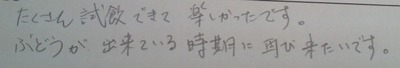 たくさん試飲できて楽しかったです。
ぶどうが出来ている時期に再び来たいです。